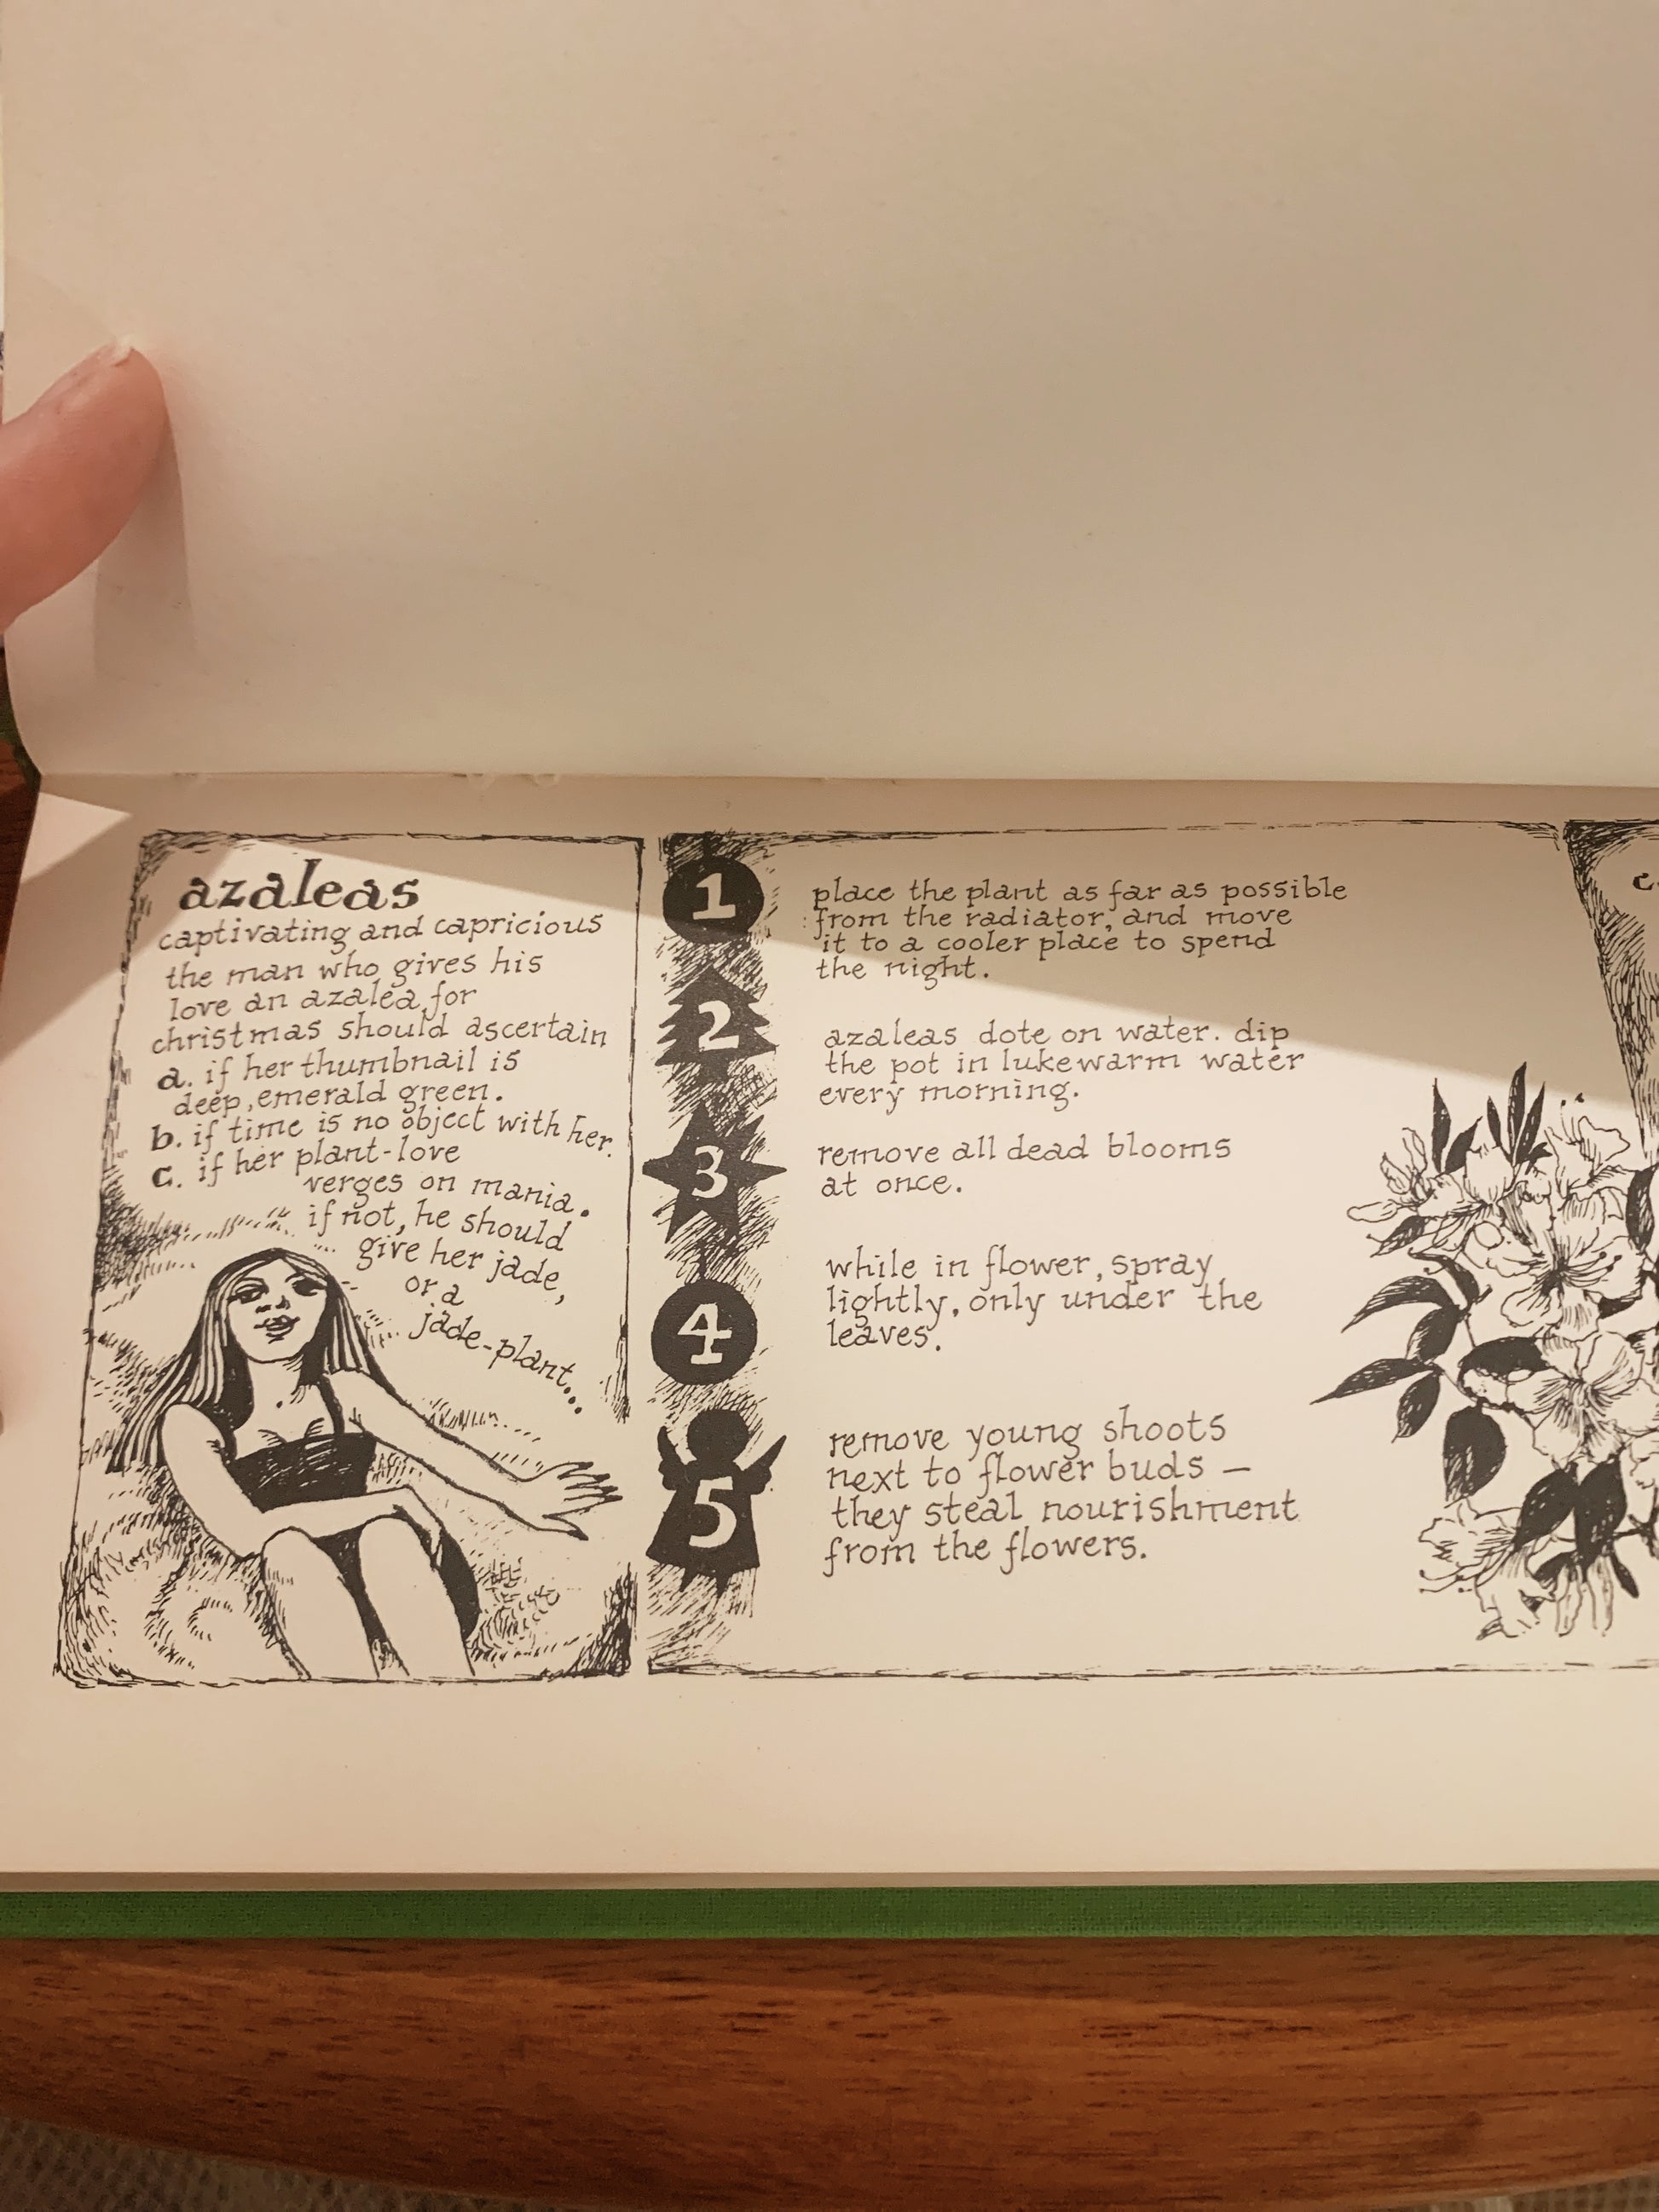 azaleas
captivating and capricious
the man who gives his
love an azalea for
christmas should ascertain
a. if her thumbnail is
deep, emerald green.
b. if time is no object with her.
c. if her plant-love
verges on mania.
if not, he should
give her jade,
or a
jade-plant...
1
place the plant as far as possible
from the radiator, and move
it to a cooler place to spend
the night.
2
azaleas dote on water. dip
the pot in lukewarm water
every morning.
3
remove all dead blooms
at once.
4
while in flower, spray
lightly, only under the
leaves.
5
remove young shoots
next to flower buds —
they steal nourishment
from the flowers.